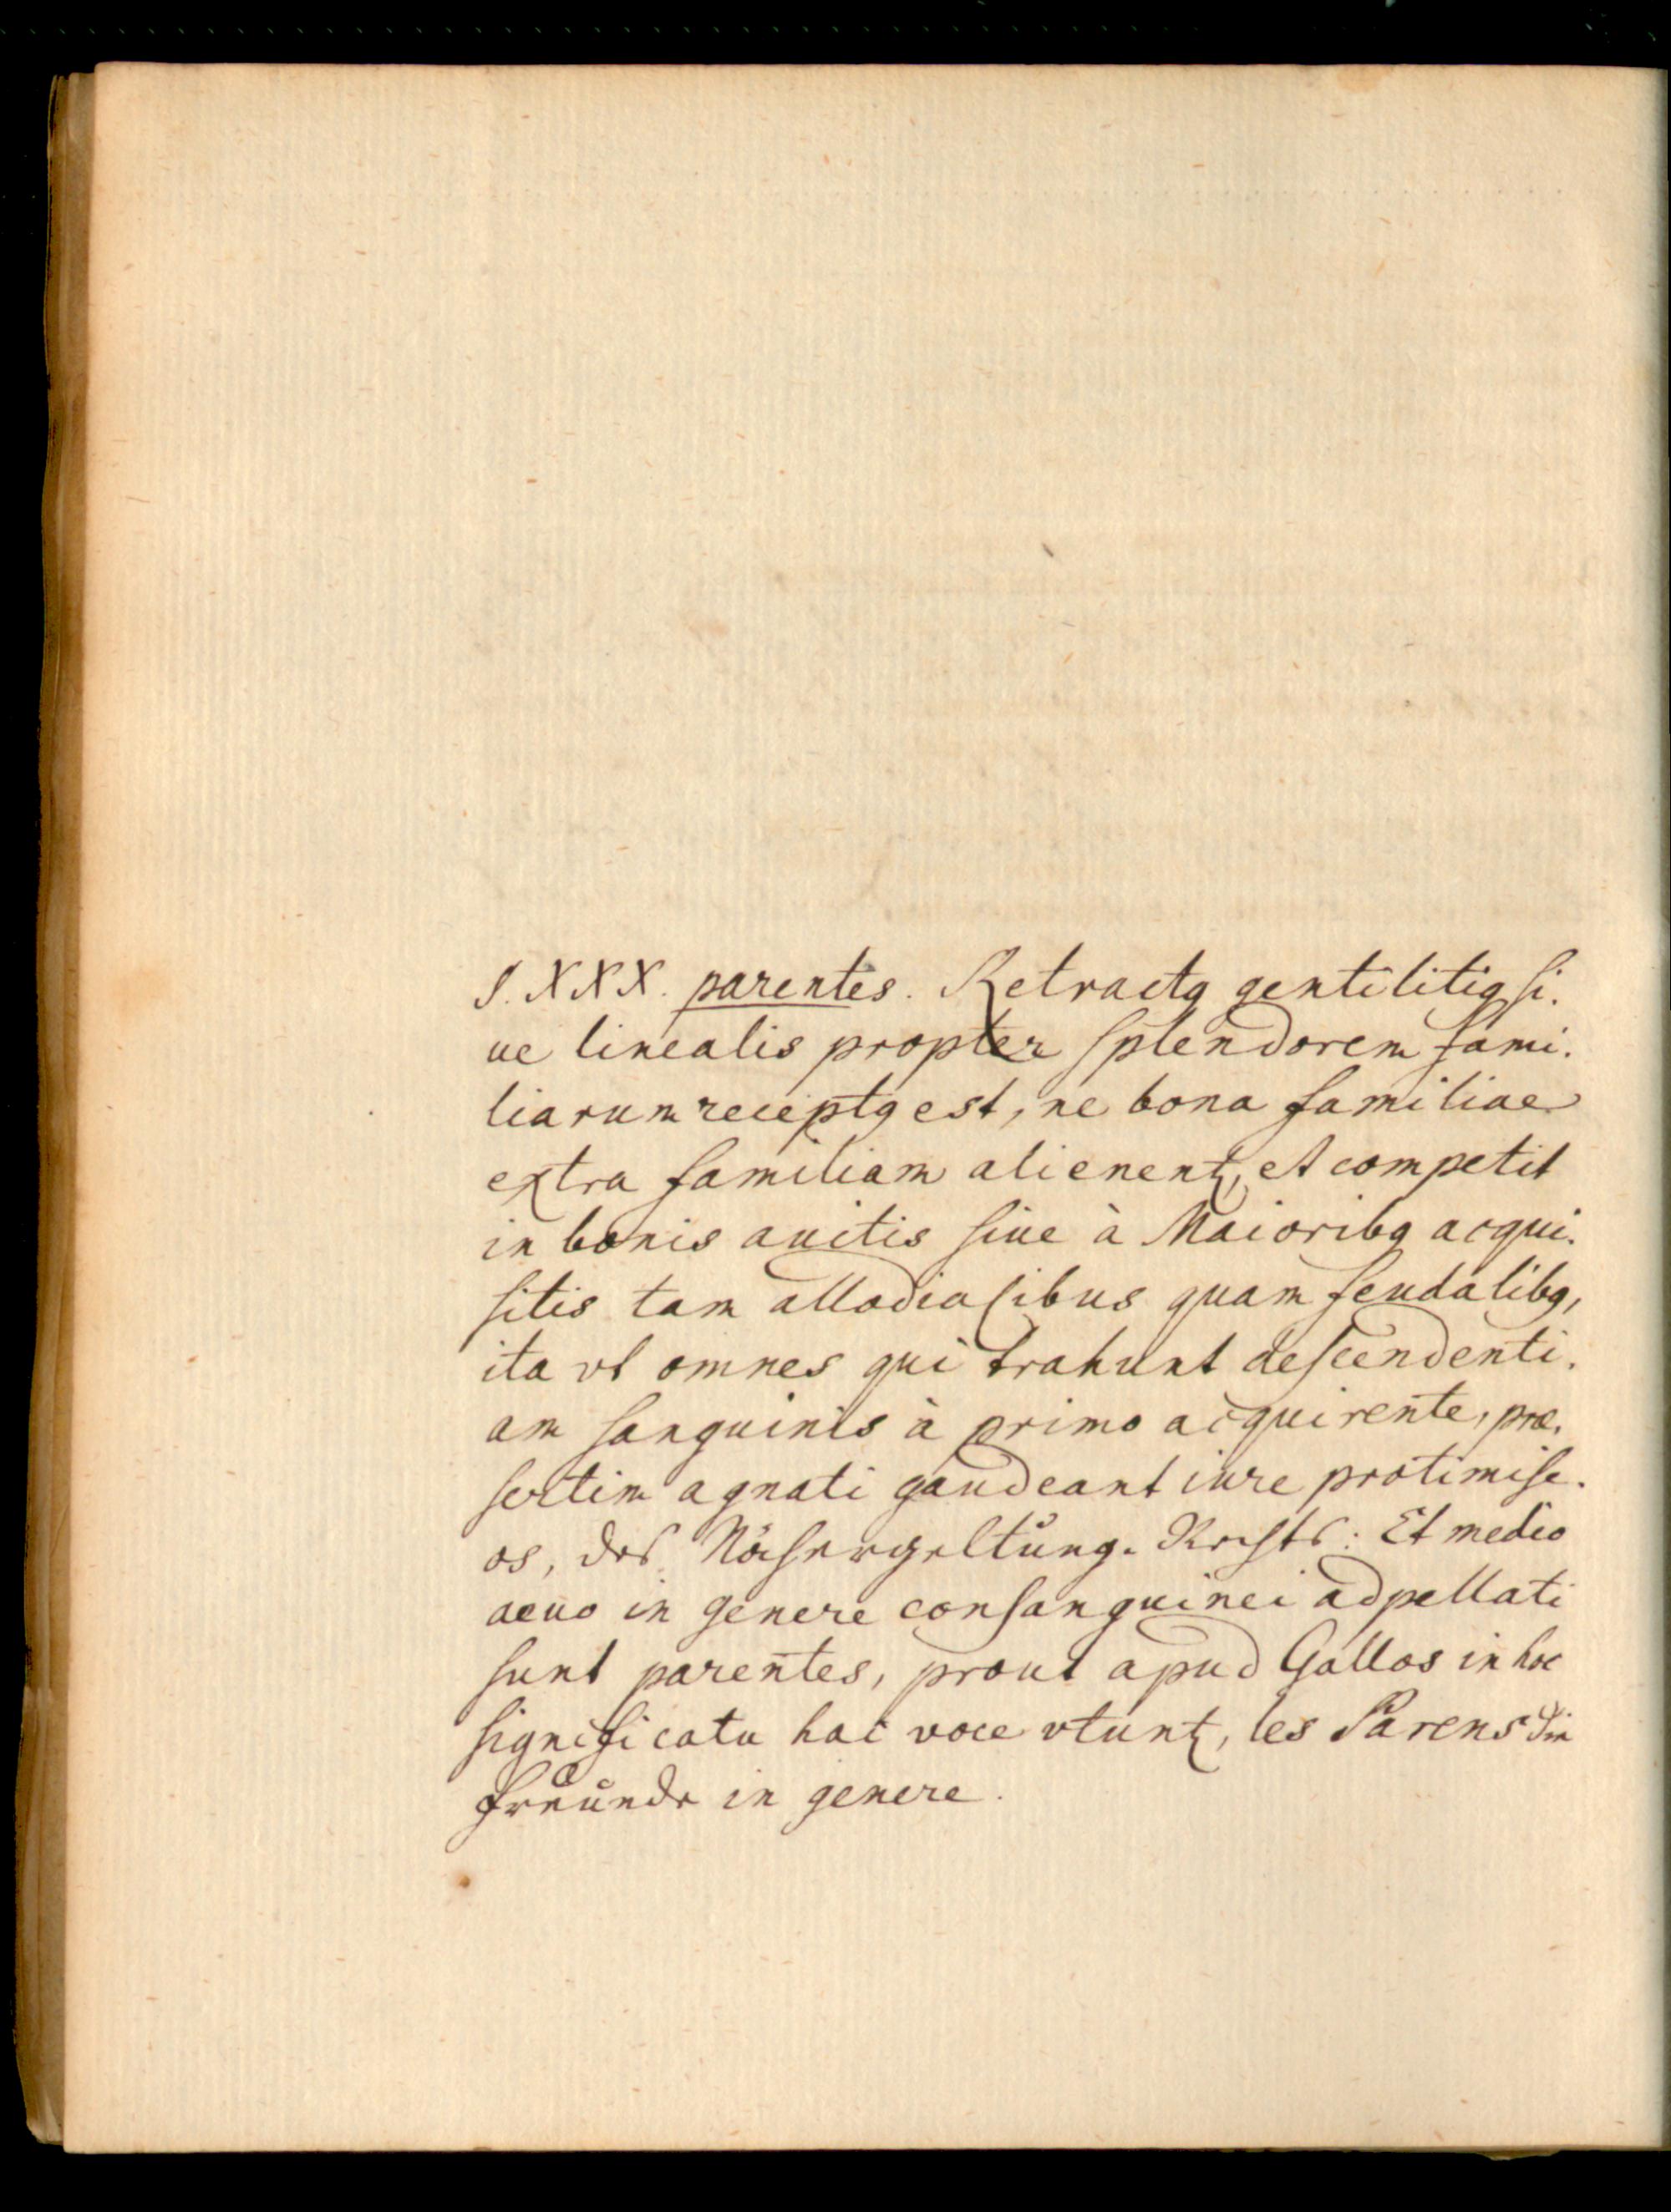 §. XXX. parentes. Retractꝫ gentilitiꝫ si-
ue linealis propter splendorem fami-
liarum receptꝫ est, ne bona familiae
extra familiam alienentꝛ, et competit
in bonis auitis siue à Maioribꝫ acqui-
sitis tam allodialibus quam feudalibꝫ,
ita vt omnes qui trahunt descendenti-
am sanguinis à primo acquirente, præ-
sertim agnati gaudeant iure protimise-
os, des Nähergeltung-Rechts: Et medio
aeuo in genere consanguinei adpellati
sunt parentes, prout apud Gallos in hoc
significatu hac voce vtuntꝛ, les Parens die
freunde in genere.